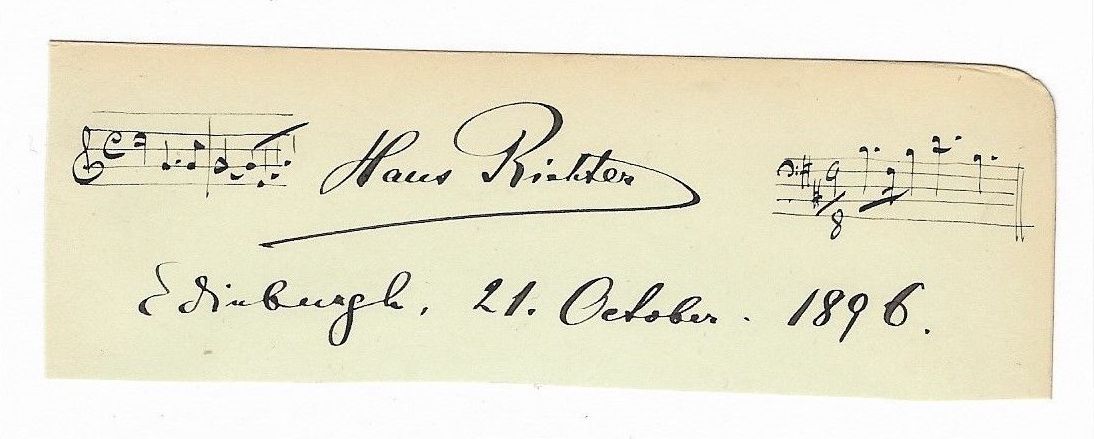 Hans Richter
8
Edinburgh, 21. October. 1896.